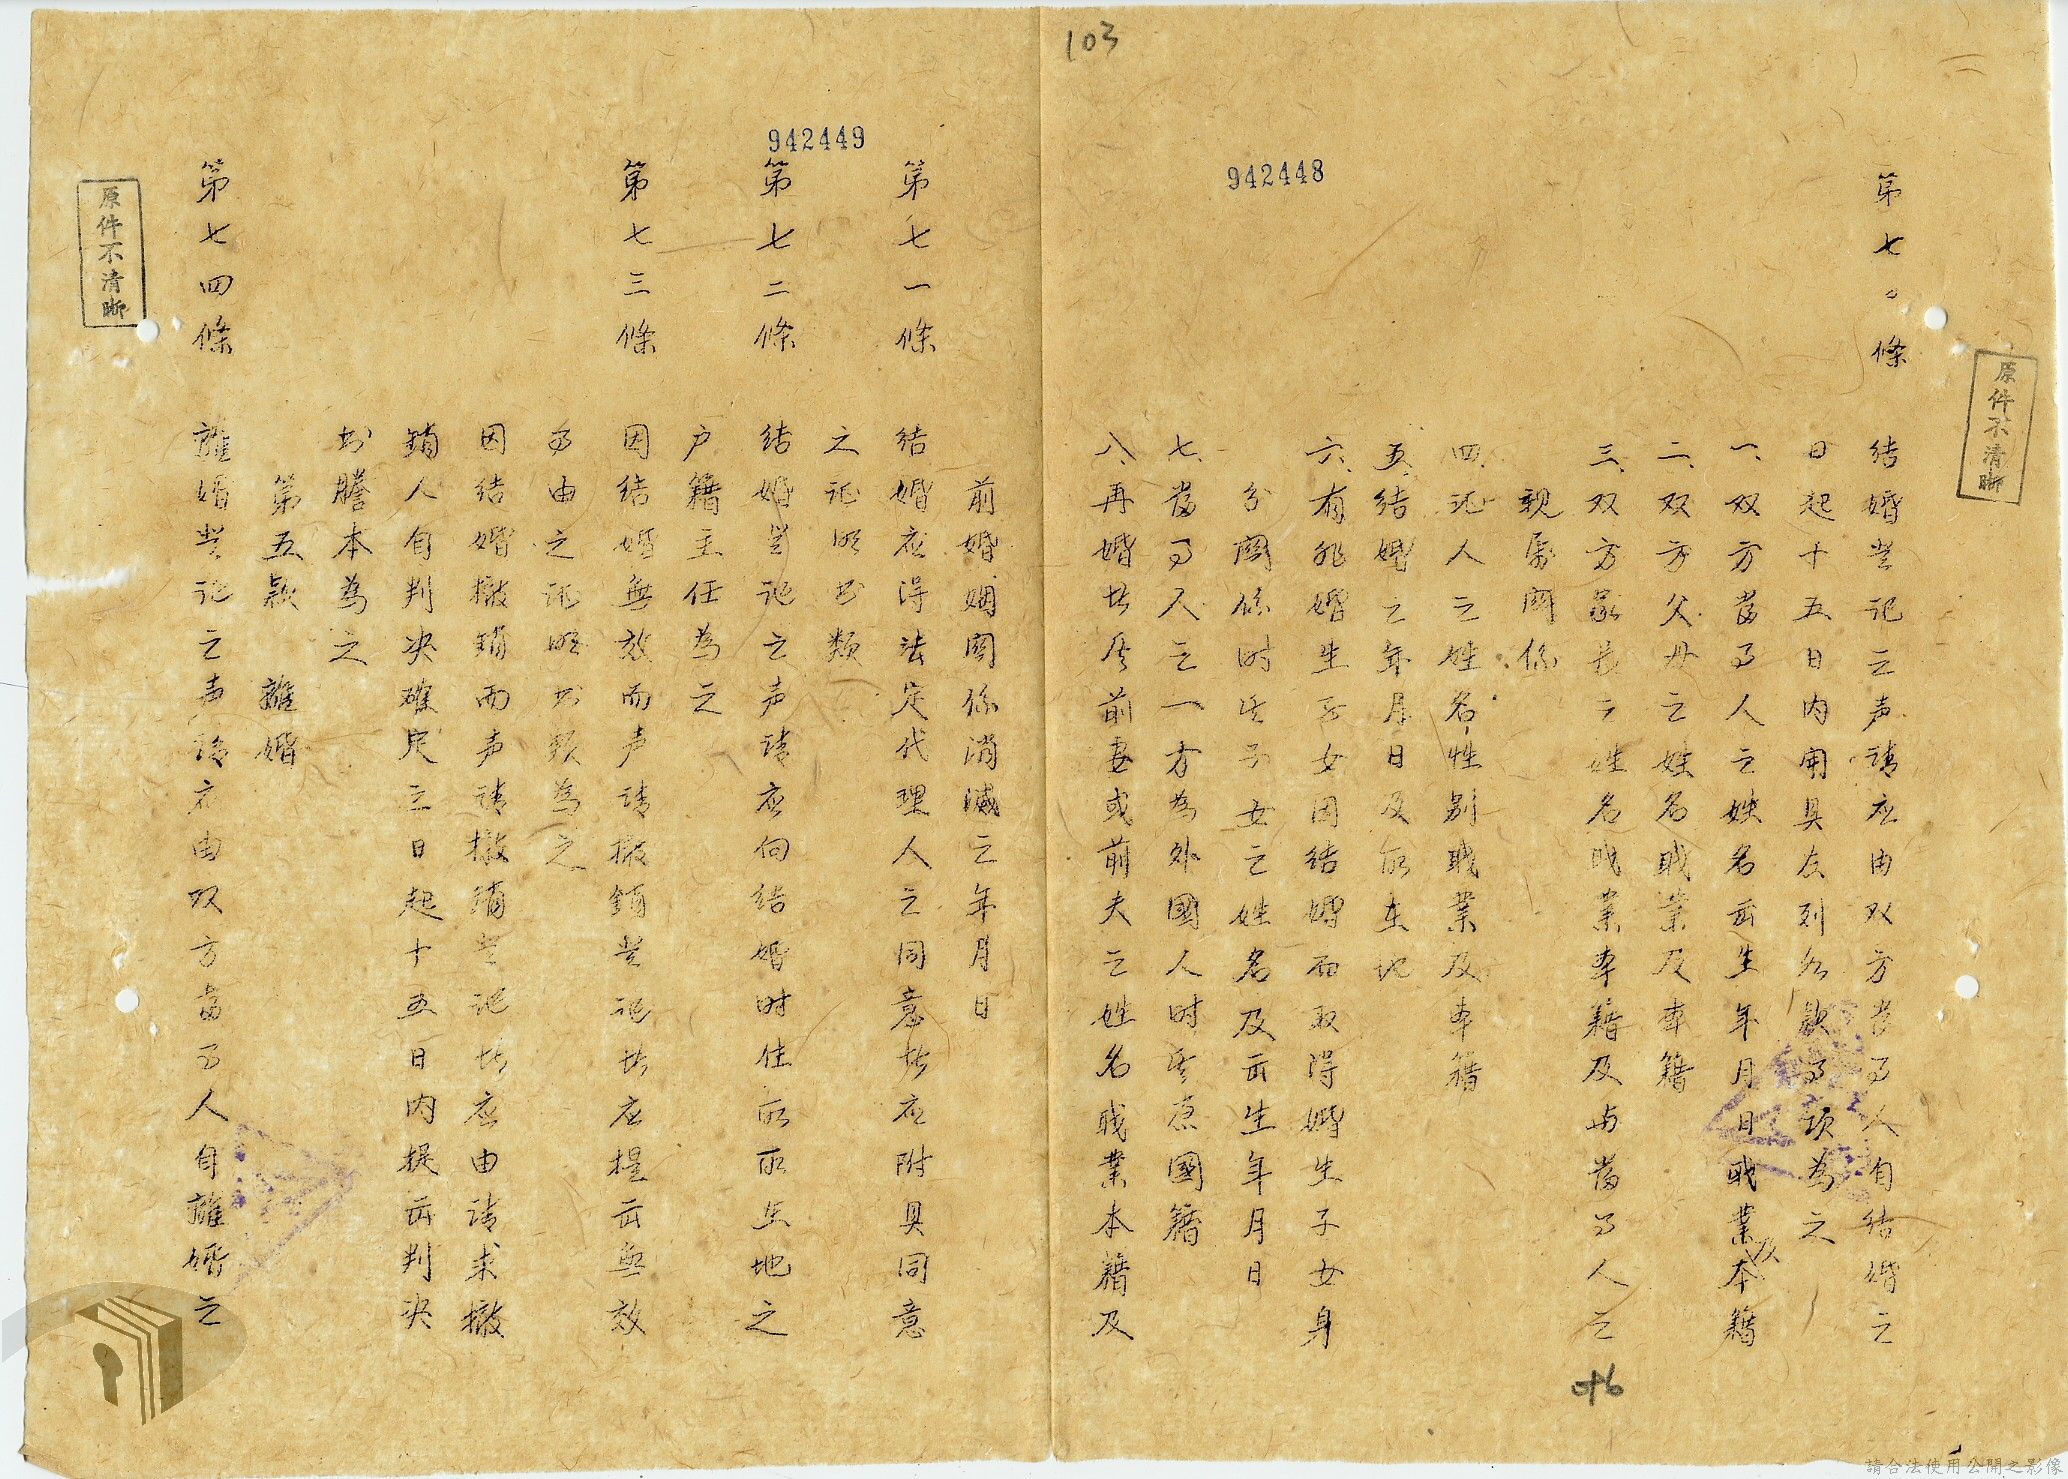 103
942448
942449
原件不清晰
原件不清晰
第七〇條 結婚登记之声请应由双方当事人自结婚之
日起十五日内開具左列各款事項为之
一、双方當事人之姓名出生年月日职業本籍
二、双方父母之姓名职業及本籍
三、双方家長之姓名职業本籍及与當事人之
親屬関係
四、证人之姓名性别职業及本籍
五、结婚之年月日及所在地
六、有非婚生子女因结婚而取得婚生子女身
分関係时其子女之姓名及出生年月日
七、當事人之一方為外國人时其原國籍
八、再婚者其前妻或前夫之姓名职業本籍及
前婚姻関係消滅之年月日
第七一條 结婚应得法定代理人之同意者应附具同意
之证明书類
第七二條 结婚登记之声请应向结婚时住所所在地之
户籍主任為之
第七三條 因结婚無效而声请撤銷登记者应提出無效
事由之证明书類為之
因结婚撤銷而声请撤銷登记者应由请求撤
銷人自判决確定之日起十五日内提出判决
书謄本為之
第五款 離婚
第七四條 離婚登记之声请应由双方當事人自離婚之
096
請合法使用公開之影像